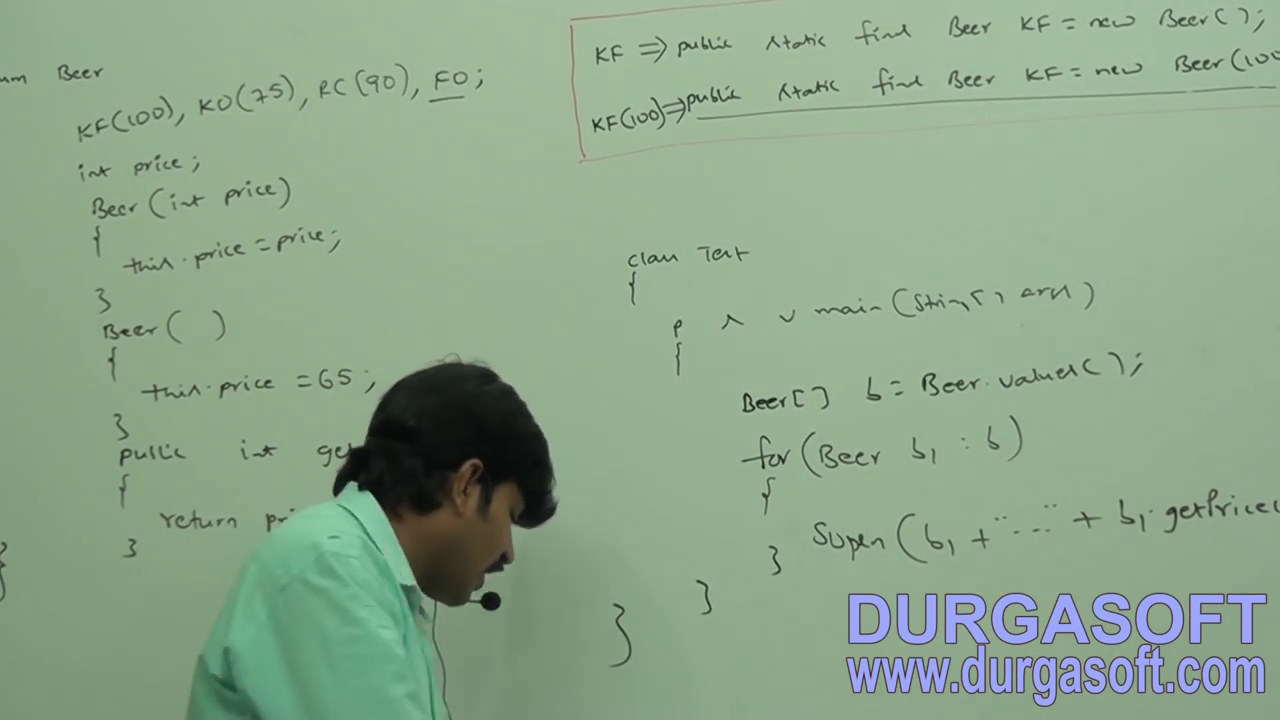 um Beer
KF(100), KO(75), RC(90), FO;
int price;
Beer(int price)
{
this.price=price;
}
Beer( )
{
this.price =65;
}
public int get
{
return pri
}
}
KF => public static final Beer KF = new Beer( );
KF(100)=>public static final Beer KF = new Beer(100
class Test
{
p s v main(String[] args)
{
Beer[] b = Beer.values( );
for(Beer b1 : b)
{
Sopln(b1 + "...." + b1.getPrice(
}
}
}
DURGASOFT
www.durgasoft.com